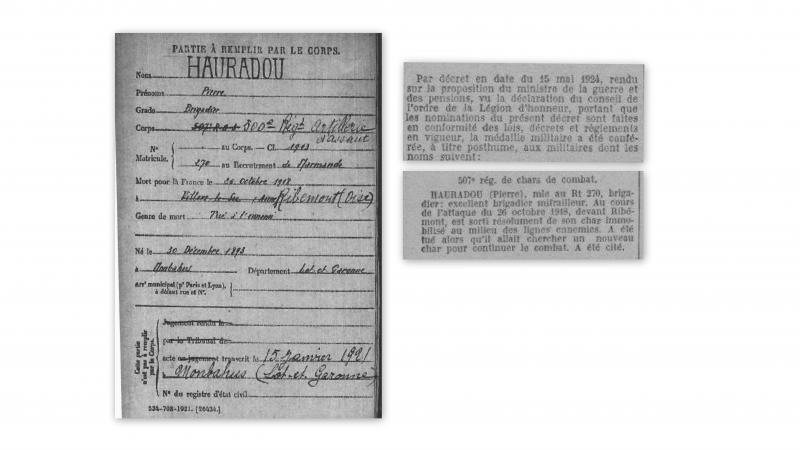 PARTIE À REMPLIR PAR LE CORPS.
Nom HAURADOU
Prénoms Pierre
Grade Brigadier
Corps 500e Régt Artillerie
d'assaut
N°
Matricule.
au Corps. — Cl. 1913
270 au Recrutement de Marmande
Mort pour la France le 26 octobre 1918
à Villers le Sec Ribemont (Oise)
Genre de mort Tué à l'ennemi
Né le 30 Décembre 1893
à Monbahus Département Lot et Garonne
Arrt municipal (pr Paris et Lyon),
à défaut rue et N°.
Cette partie
n'est pas à remplir
par le Corps.
Jugement rendu le
par le Tribunal de
acte ou jugement transcrit le 15 Janvier 1921
à Monbahus (Lot et Garonne
N° du registre d'état civil
534-708-1921. [26434.]
Par décret en date du 15 mai 1924, rendu
sur la proposition du ministre de la guerre et
des pensions, vu la déclaration du conseil de
l'ordre de la Légion d'honneur, portant que
les nominations du présent décret sont faites
en conformité des lois, décrets et règlements
en vigueur, la médaille militaire a été confé-
rée, à titre posthume, aux militaires dont les
noms suivent:
507e rég. de chars de combat.
HAURADOU (Pierre), mle au Rt 270, briga-
dier: excellent brigadier mitrailleur. Au cours
de l'attaque du 26 octobre 1918, devant Ribé-
mont, est sorti résolument de son char immo-
bilisé au milieu des lignes ennemies. A été
tué alors qu'il allait chercher un nouveau
char pour continuer le combat. A été cité.